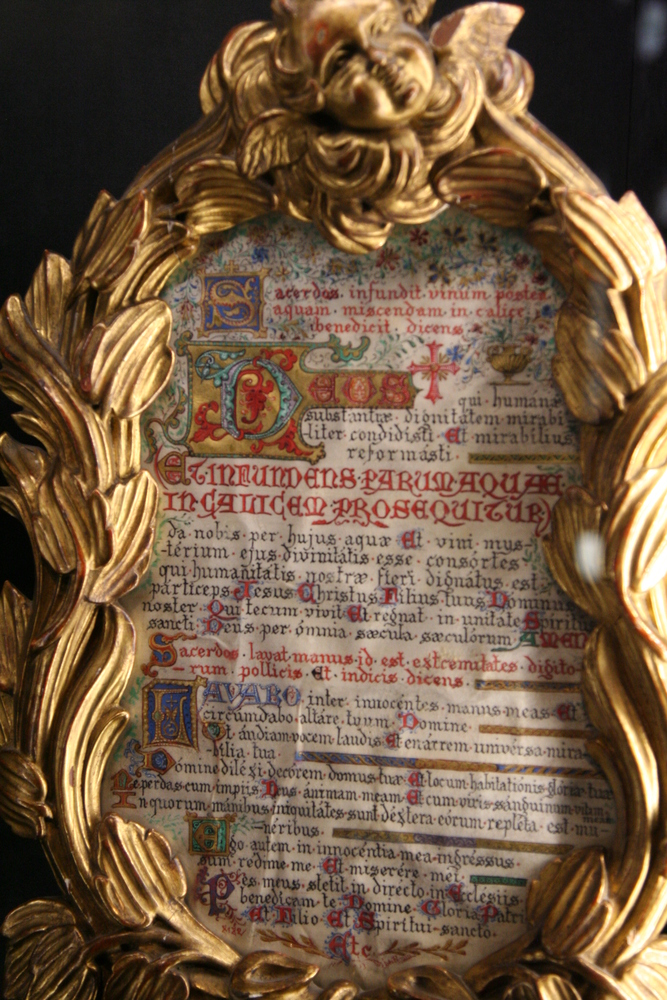 Sacerdos infundit vinum postea
aquam miscendam in calice
benedicit dicens
DEUS ✠ qui humanæ
substantiæ dignitátem mirabi-
liter condidisti Et mirabilius
reformásti
(ET INFUNDENS PARUM AQUÆ
IN CALICEM PROSEQUITUR)
da nobis per hujus aquæ Et vini mys-
-térium ejus divinitátis esse consórtes
qui humanitátis nostræ fieri dignátus est
párticeps Jesus Christus Filius tuus Dominus
noster Qui tecum vivit Et regnat in unitate Spiritus
sancti Deus per ómnia sæcula sæculórum AMEN
Sacerdos lavat manus id est extremitates digito-
rum pollicis Et indicis dicens
LAVABO inter innocéntes manus meas Et
circúmdabo altáre tuum Domine
Ut áudiam vocem laudis Et enárrem univérsa mira-
-bilia tua
Dómine diléxi decórem domus tuæ Et locum habitatiónis gloriæ tuæ
Ne perdas cum impiis Deus ánimam meam Et cum viris sánguinum vitam
meam
In quorum mánibus iniquitátes sunt déxtera eórum repléta est mu-
-néribus
Ego autem in innocéntia mea ingréssus
sum redime me Et miserére mei
Pes meus stetit in directo in Ecclesiis
benedicam te Domine Gloria Patri
Et Filio Et Spiritui sancto
Etc